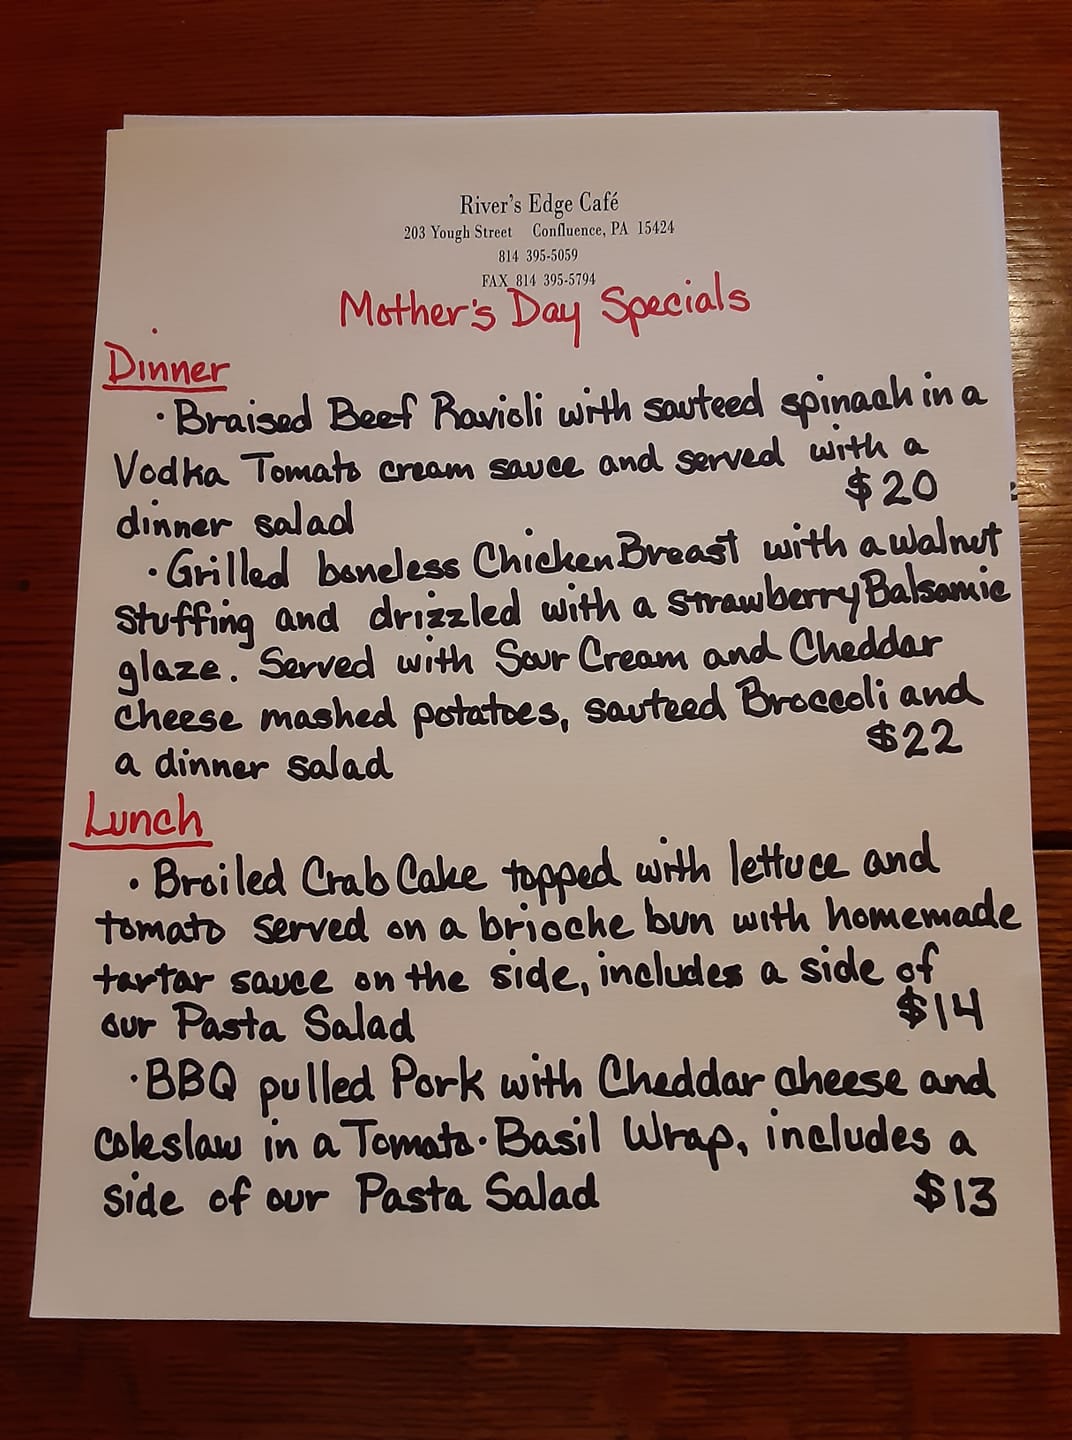 River's Edge Café
203 Yough Street Confluence, PA 15424
814 395-5059
FAX 814 395-5794
Mother's Day Specials
Dinner
· Braised Beef Ravioli with sauteed spinach in a
Vodka Tomato cream sauce and served with a
dinner salad $20
· Grilled boneless Chicken Breast with a walnut
stuffing and drizzled with a strawberry Balsamic
glaze. Served with Sour Cream and Cheddar
cheese mashed potatoes, sauteed Broccoli and
a dinner salad $22
Lunch
· Broiled Crab Cake topped with lettuce and
tomato served on a brioche bun with homemade
tartar sauce on the side, includes a side of
our Pasta Salad $14
· BBQ pulled Pork with Cheddar cheese and
coleslaw in a Tomato·Basil Wrap, includes a
side of our Pasta Salad $13